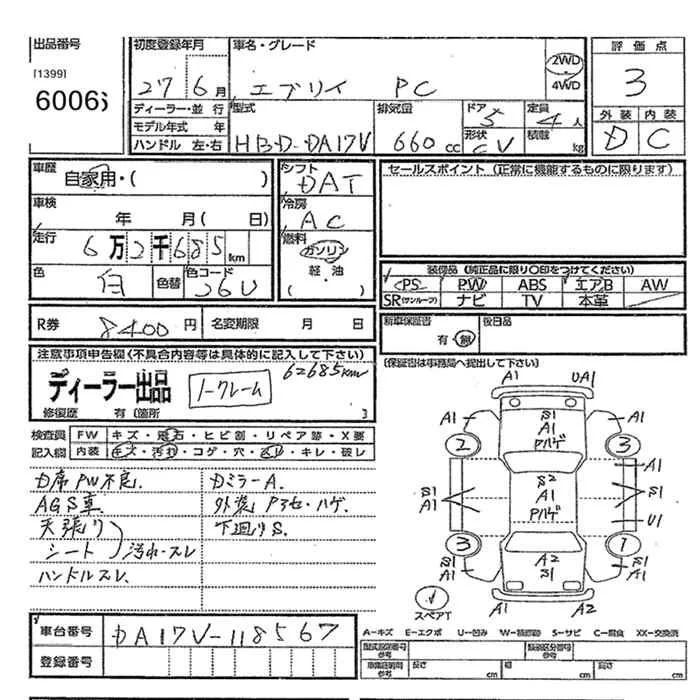 出品番号 初度登録年月 車名・グレード 評価点
[1399] 27 6月 エブリイ PC 2WD・4WD 3
60066
ディーラー・並行 型式 排気量 ドア 5 定員 4人 外装 内装
モデル年式 年 HBD-DA17V 660cc 形状 CV 積載 kg D C
ハンドル 左・右
車歴 自家用・( ) シフト DAT セールスポイント (正常に機能するものに限ります)
車検 年 月( 日) 冷房 AC
走行 6万2千685km 燃料 ガソリン
軽・油
( )
色 白 色替 色コード 26U
装備品 (純正品に限り○印をつけてください)
PS PW ABS エアB AW
SR(サンルーフ) ナビ TV 本革
R券 8400円 名変期限 月 日 新車保証書 有・無 後日品
注意事項申告欄(不具合内容等は具体的に記入して下さい) (保証書は事務局へ提出して下さい)
62685km
ディーラー出品 ノークレーム
修復歴 有 (箇所 )
検査員 FW キズ・飛石・ヒビ割・リペア跡・X要
記入欄 内装 キズ・汚れ・コゲ・穴・スレ・キレ・破レ
D席PW不良. DミラーA.
AGS車. 外装Pヌケ・ハゲ.
天張り 下廻りS.
シート 汚れ・スレ
ハンドルスレ.
A1 UA1
A1 S1 A1
2 A1 3
Pハゲ
A1
S1 S2 S1
A1 A1
Pハゲ U1
3 1
S1 A2 S1
A1 S1 A1
スペアT A1 A2
車台番号 DA17V-118567
登録番号
A-キズ E-エクボ U-凹み W-補修跡 S-サビ C-腐食 XX-交換済
型式指定番号 参考 類別区分番号 参考
車庫証明用 参考 長さ cm 幅 cm 高さ cm